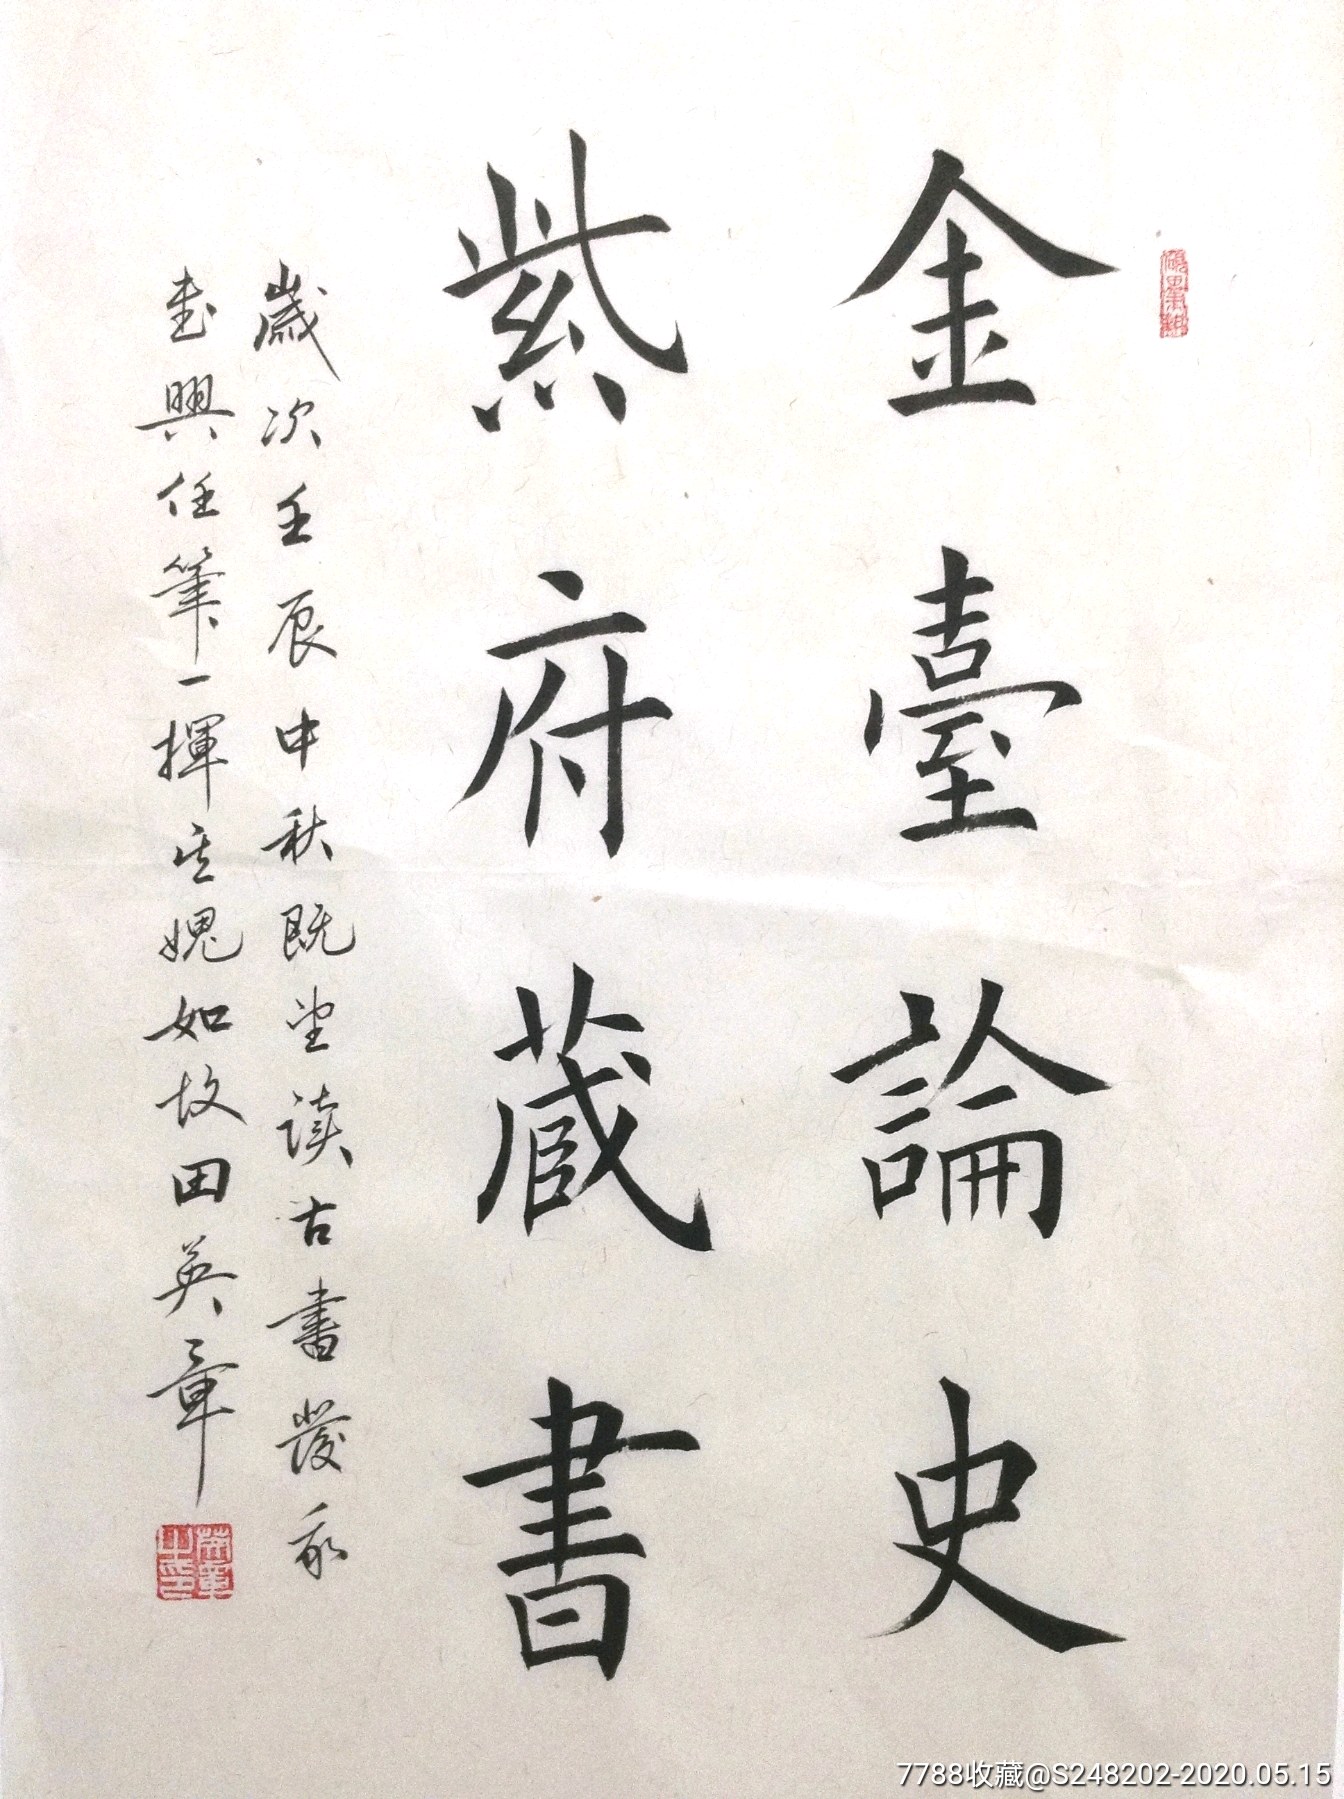 金臺論史
紫府蔵書
歲次壬辰中秋既望读古書發我
书興任筆一揮其媿如故田英章
7788收藏@S248202-2020.05.15